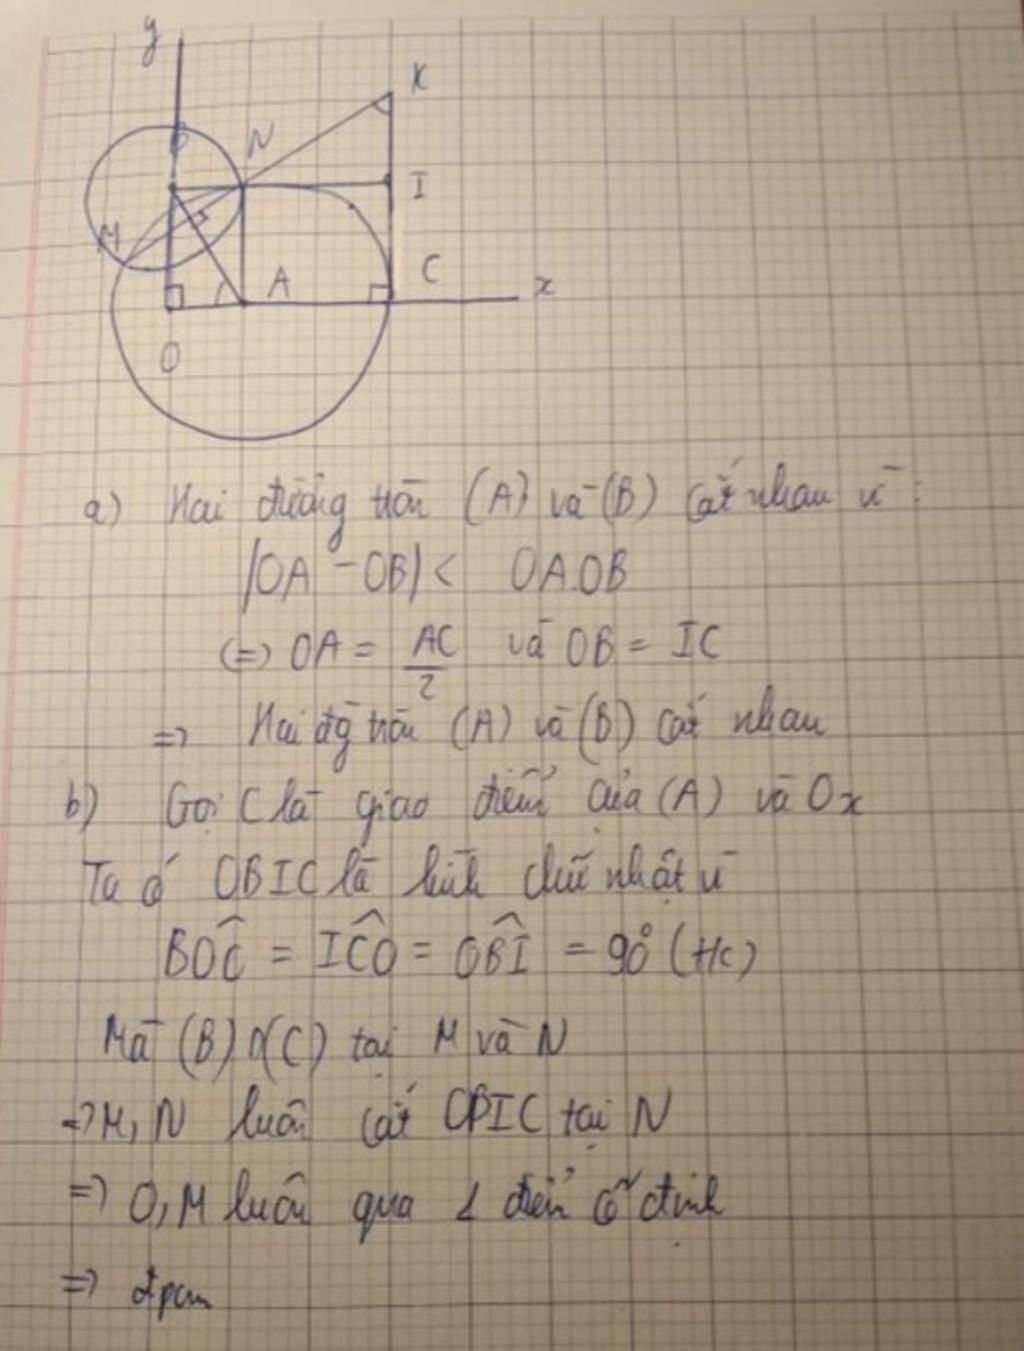 y
K
B N
I
M
A C x
O
a) Hai đường tròn (A) và (B) cắt nhau vì:
|OA - OB| < OA.OB
(=) OA = AC/2 và OB = IC
=> Hai đg tròn (A) và (B) cắt nhau
b) Gọi C là giao điểm của (A) và Ox
Ta có OBIC là hình chữ nhật vì
BÔC = IĈO = OB̂I = 90° (Hc)
Mà (B) ∩ (C) tại M và N
=> M, N luôn cắt OBIC tại N
=> O, M luôn qua 1 điểm cố định
=> đpcm